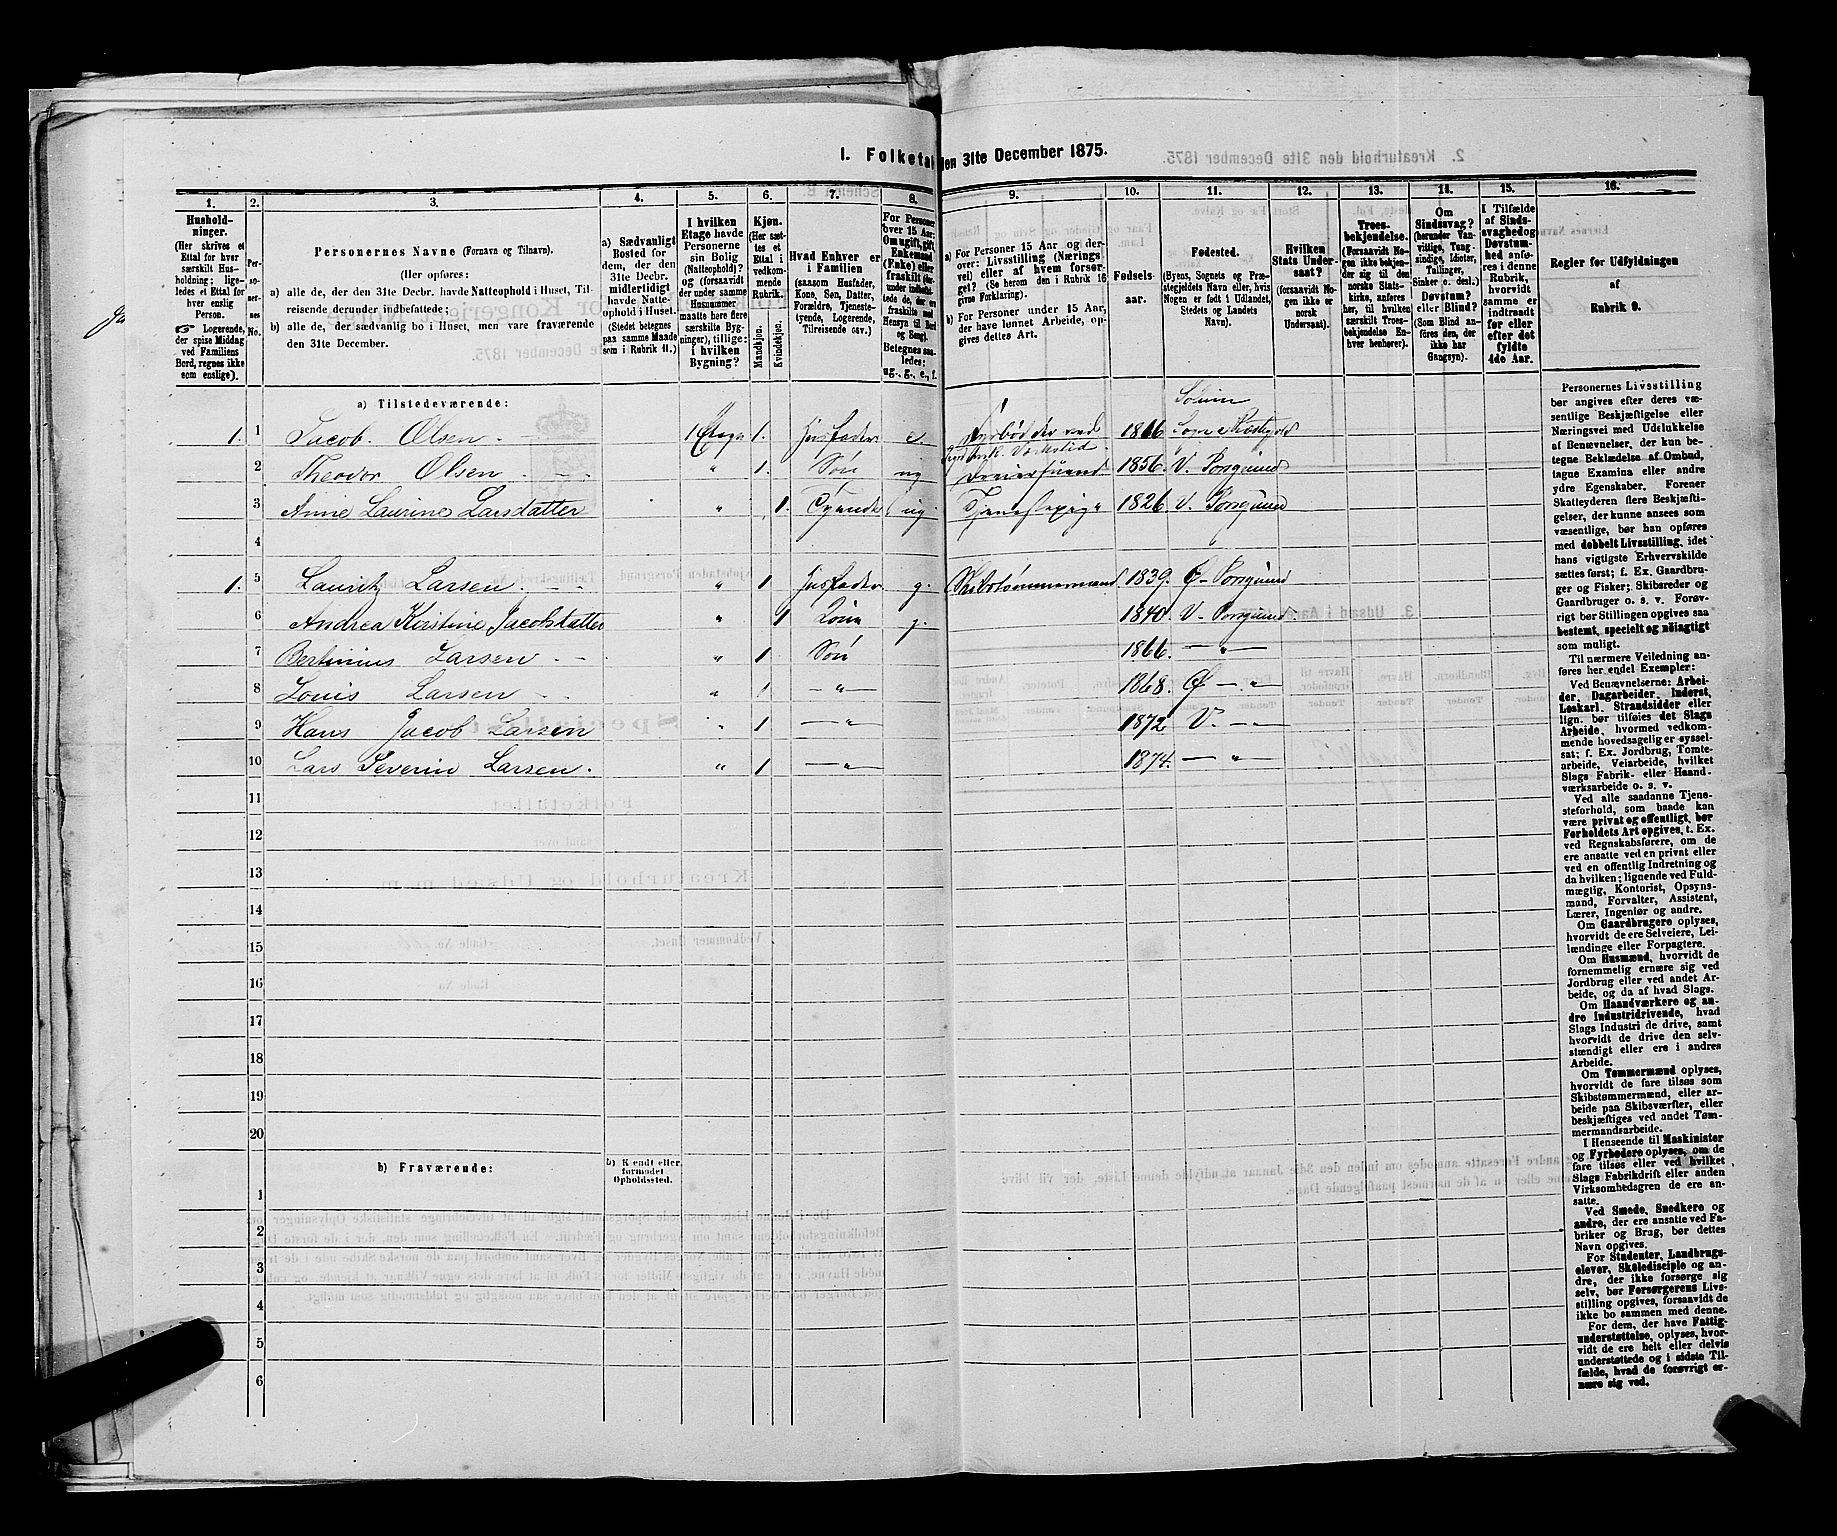 1. Folketal den 31te December 1875.
1. 2. 3. 4. 5. 6. 7. 8. 9. 10. 11. 12. 13. 14. 15. 16.
Hushold-
ninger.
(Her skrives et
Ettal for hver
særskilt Hus-
holdning; lige-
ledes et Ettal for
hver enslig
Person.
Logerende,
der spise Middag
ved Familiens
Bord, regnes ikke
som enslige).
Per-
so-
ner-
nes
No.
Personernes Navne (Fornavn og Tilnavn).
(Her opføres:
a) alle de, der den 31te Decbr. havde Natteophold i Huset, Til-
reisende derunder indbefattede;
b) alle de, der sædvanlig bo i Huset, men vare fraværende
den 31te December.
a) Sædvanligt
Bosted for
dem, der den
31te Decbr.
midlertidigt
havde Natte-
ophold i Huset.
(Stedet betegnes
paa samme Maade
som i Rubrik 11.)
I hvilken
Etage havde
Personerne
sin Bolig
(Natteophold)?
(forsaavidt
der under samme
Husnummer
maatte høre flere
særskilte Byg-
ninger), tillige:
i hvilken
Bygning?
Kjøn.
(Her sæt-
tes et
Ettal i
vedkom-
mende
Rubrik.
Mandkjøn.
Kvindekjøn.
Hvad Enhver er
i Familien
(saasom Husfader,
Kone, Søn, Datter,
Forældre, Tjeneste-
tyende, Logerende,
Tilreisende osv.)
For Personer
over 15 Aar:
Om ugift, gift,
Enkemand
(Enke) eller
fraskilt
Betegnes saa-
ledes:
ug., g., e., f.
a) For Personer 15 Aar og der-
over: Livsstilling (Nærings
vei) eller af hvem forsør-
get? (Se herom den i Rubrik 16
givne Forklaring).
b) For Personer under 15 Aar,
der have lønnet Arbeide, op-
gives dettes Art.
Fødsels-
aar.
Fødested.
(Byens, Sognets og Præ-
stegjeldets Navn eller, hvis
Nogen er født i Udlandet,
Stedets og Landets
Navn).
Hvilken
Stats Under-
saat?
(forsaavidt No-
gen ikke er
norsk
Undersaat).
Troes-
bekjendelse.
(Forsaavidt No-
gen ikke bekjen-
der sig til den
norske Stats-
kirke, anføres
her, til hvilken
særskilt Troes-
bekjendelse En-
hver henhører).
Om
Sindssvag?
(herunder Van-
vittige, Tung-
sindige, Idioter,
Tullinger,
Sinker o. desl.)
Døvstum?
eller Blind?
(Som Blind an-
føres den, der
ikke har
Gangsyn).
I Tilfælde
af Sinds-
svaghed og
Døvstum-
hed anfø-
res i denne
Rubrik,
hvorvidt
samme er
indtraadt
før eller
efter det
fyldte
4de Aar.
Regler for Udfyldningen
af
Rubrik 9.
a) Tilstedeværende:
1. 1 Jacob. Olsen 1 Etage 1. Husfader e. 1816
2 Theodor Olsen " 1. Søn ug 1856. V. Porsgrund
3 Anne Laurine Larsdatter " 1. Tyende ug. Tjenestepige 1826. V. Porsgrund
4
1. 5 Lauritz Larsen " 1 Husfader g. Skibstømmermand 1839. Ø- Porsgrund
6 Andrea Kirstine Jacobsdatter " 1 Kone g. 1840. V- Porsgrund.
7 Bertinius Larsen " 1. Søn 1866. — " —
8 Louis Larsen " 1 — " — 1868. Ø — " —
9 Hans Jacob Larsen " 1 — " — 1872 V. — " —
10 Lars Severin Larsen. " 1 — " — 1874. — " —
11
12
13
14
15
16
17
18
19
20
b) Fraværende:
b) Kjendt eller
formodet
Opholdssted.
1
2
3
4
5
6
Personernes Livsstilling
bør angives efter deres væ-
sentlige Beskjæftigelse eller
Næringsvei med Udelukkelse
af Benævnelser, der kun be-
tegne Beklædelse af Ombud,
tagne Examina eller andre
ydre Egenskaber. Forener
Skatteyderen flere Beskjæfti-
gelser, der kunne ansees som
væsentlige, bør han opføres
med dobbelt Livsstilling, idet
hans vigtigste Erhvervskilde
sættes først; f. Ex. Gaardbru-
ger og Fisker; Skibsreder og
Gaardbruger o. s. v. Forøv-
rigt bør Stillingen opgives saa
bestemt, specielt og nøiagtigt
som muligt.
Til nærmere Veiledning an-
føres her endel Exempler:
Ved Benævnelserne: Arbei-
der, Dagarbeider, Inderst,
Løskarl, Strandsidder eller
lign. bør tilføies det Slags
Arbeide, hvormed vedkom-
mende hovedsagelig er syssel-
sat; f. Ex. Jordbrug, Tomte-
arbeide, Veiarbeide, hvilket
Slags Fabrik- eller Haand-
værksarbeide o. s. v.
Ved alle saadanne Tjene-
steforhold, som baade kan
være privat og offentligt, bør
Forholdets Art opgives, t. Ex.
ved Regnskabsførere, om de
ere ansatte ved en privat eller
ved en offentlig Indretning og
da hvilken; lignende ved Fuld-
mægtig, Kontorist, Opsyns-
mand, Forvalter, Assistent,
Lærer, Ingeniør og andre.
Om Gaardbrugere oplyses,
hvorvidt de ere Selveiere, Lei-
lændinge eller Forpagtere.
Om Husmænd, hvorvidt de
fornemmelig ernære sig ved
Jordbrug eller ved andet Ar-
beide, og da af hvad Slags.
Om Haandværkere og an-
dre Industridrivende, hvad
Slags Industri de drive, samt
hvorvidt de drive den selv-
stændigt eller ere i andres
Arbeide.
Om Tømmermænd oplyses,
hvorvidt de fare tilsøs som
Skibstømmermænd, eller ar-
beide paa Skibsværfter, eller
beskjæftiges ved andet Tøm-
mermandsarbeide.
I Henseende til Maskinister
og Fyrbødere oplyses, om de
fare tilsøs eller ved hvilket
Slags Fabrikdrift eller anden
Virksomhedsgren de ere an-
satte.
Ved Smede, Snedkere og
andre, der ere ansatte ved Fa-
briker og Brug, bør dettes
Navn opgives.
For Studenter, Landbrugs-
elever, Skoledisciple og an-
dre, der ikke forsørge sig
selv, bør Forsørgerens Livs-
stilling opgives, forsaavidt de
ikke bo sammen med denne.
For dem, der have Fattig-
understøttelse, oplyses, hvor-
vidt de ere helt eller delvis
understøttede og i sidste Til-
fælde, hvad de forøvrigt er-
nære sig ved.